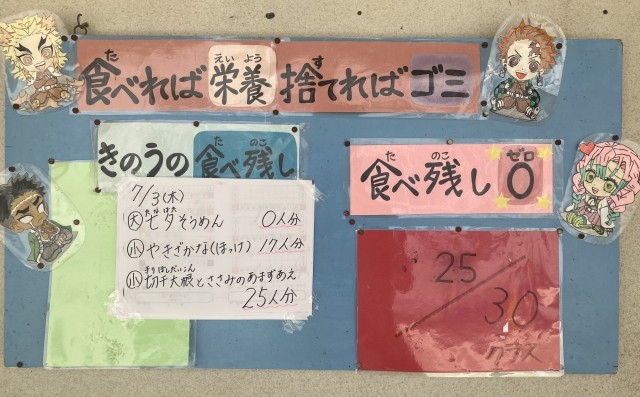 食べれば栄養 捨てればゴミ
た えいよう す
きのうの食べ残し
た のこ
7/3(木)
大 七夕そうめん 0人分
たなばた
小 やきざかな(ほっけ) 17人分
小 切干大根とささみのあまずあえ
きりぼしだいこん
25人分
食べ残し 0
た のこ ゼロ
25/30
クラス